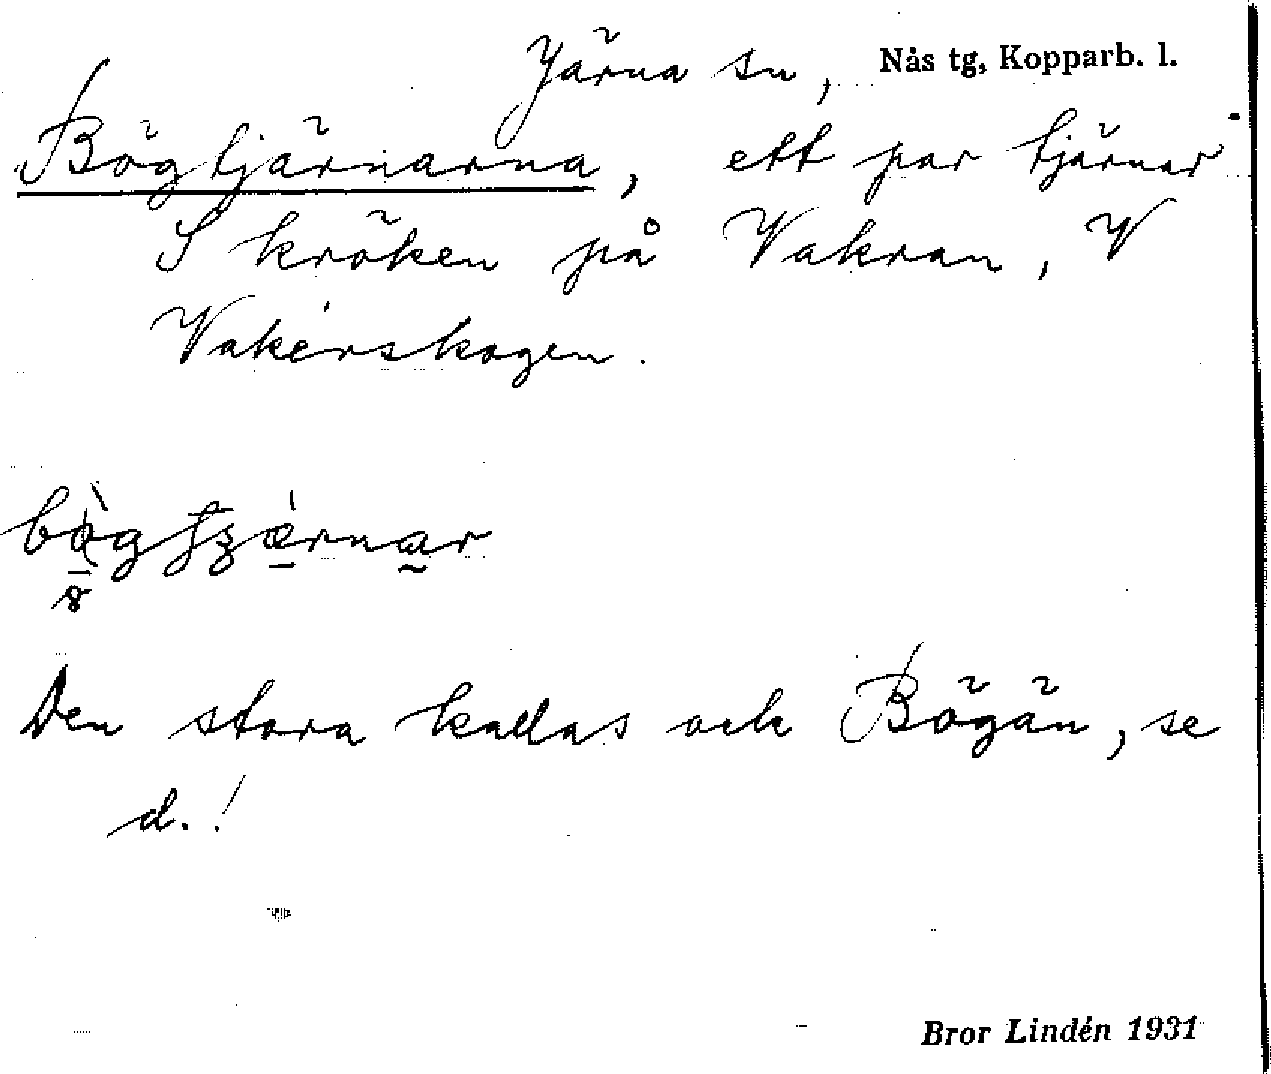 Järna sn, Nås tg, Kopparb. l.
Bögtjärnarna, ett par tjärnar
S kröken på Vakran, V
Vakérskogen.
Den stora kallas ock Bögän, se
d.!
Bror Lindén 1931